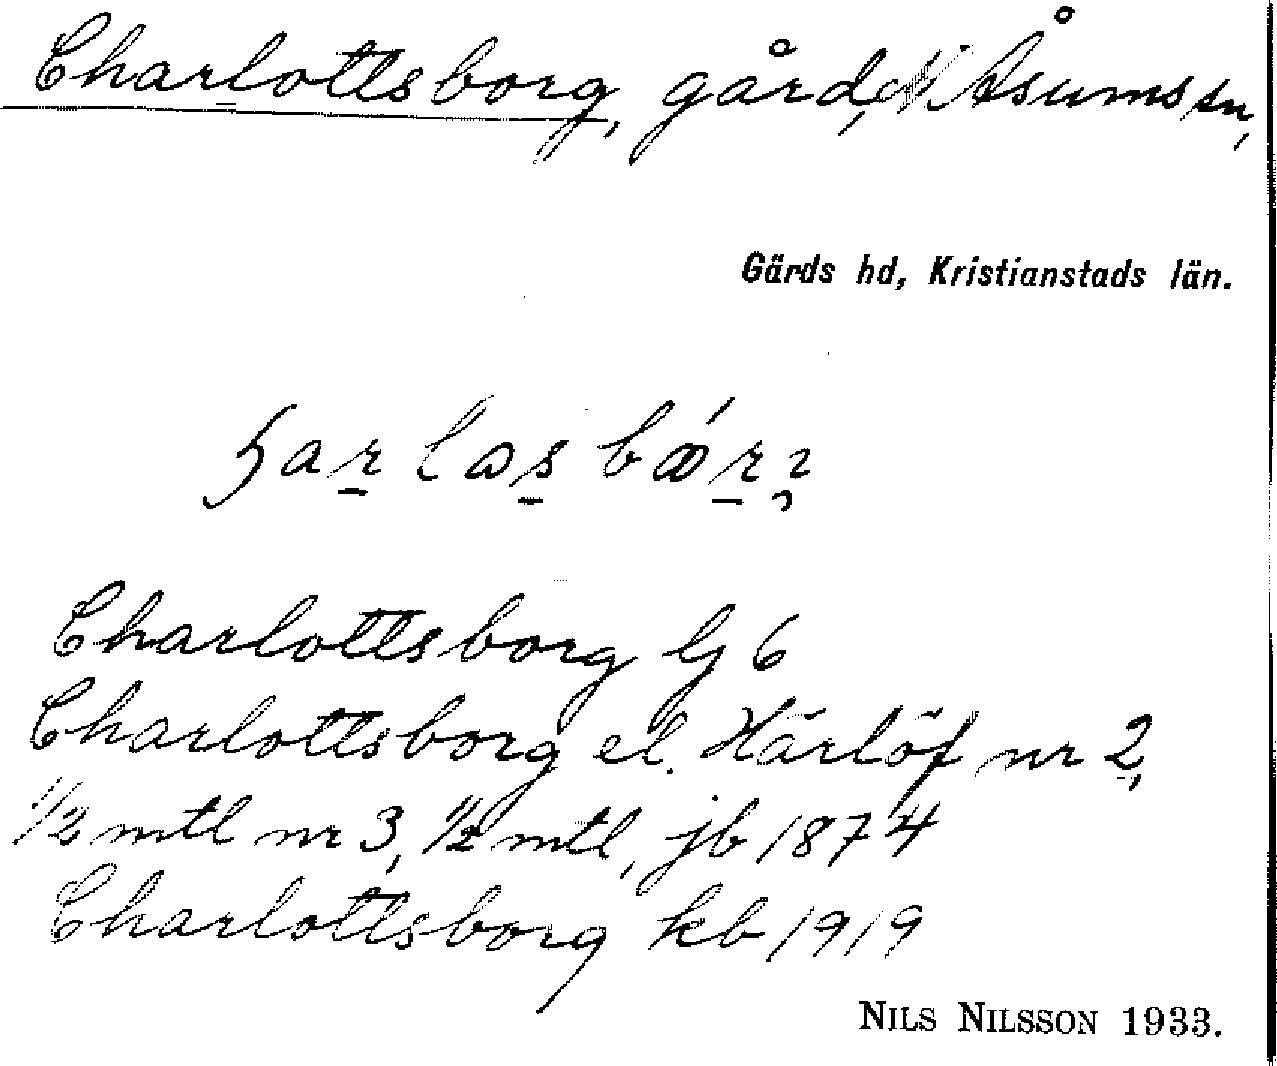 Charlottsborg, gård, N Åsums sn,
Gärds hd, Kristianstads län.
Charlottsborg G 6
Charlottsborg el. Härlöf nr 2,
1/2 mtl nr 3, 1/2 mtl, jb 1874
Charlottsborg kb 1919
NILS NILSSON 1933.